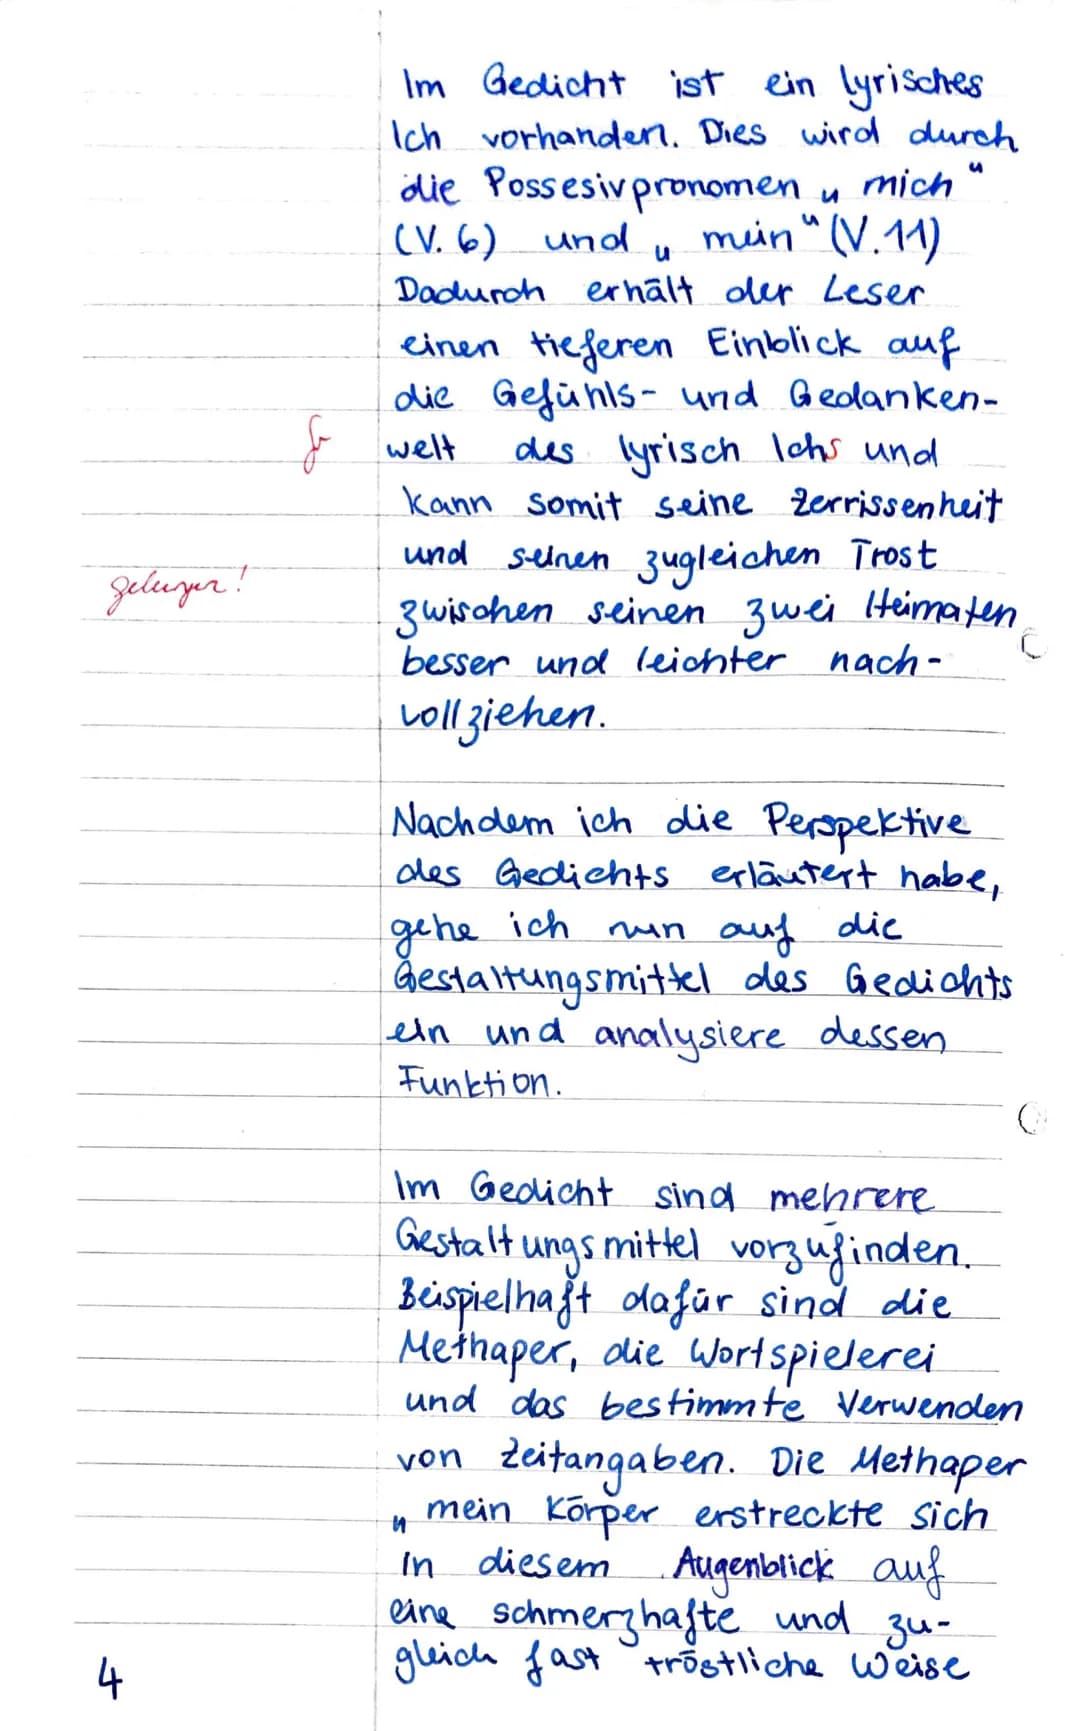 Im Gedicht ist ein lyrisches
Ich vorhanden. Dies wird durch
die Possesivpronomen „mich“
(V. 6) und „mein“ (V. 11)
Dadurch erhält der Leser
einen tieferen Einblick auf
die Gefühls- und Gedanken-
welt des lyrisch Ichs und
kann somit seine Zerrissenheit
und seinen zugleichen Trost
gelungen!
zwischen seinen zwei Heimaten
besser und leichter nach-
vollziehen.
Nachdem ich die Perspektive
des Gedichts erläutert habe,
gehe ich nun auf die
Gestaltungsmittel des Gedichts
ein und analysiere dessen
Funktion.
Im Gedicht sind mehrere
Gestaltungsmittel vorzufinden.
Beispielhaft dafür sind die
Methaper, die Wortspielerei
und das bestimmte Verwenden
von Zeitangaben. Die Methaper
„mein Körper erstreckte sich
in diesem Augenblick auf
eine schmerzhafte und zu-
gleich fast tröstliche Weise
4